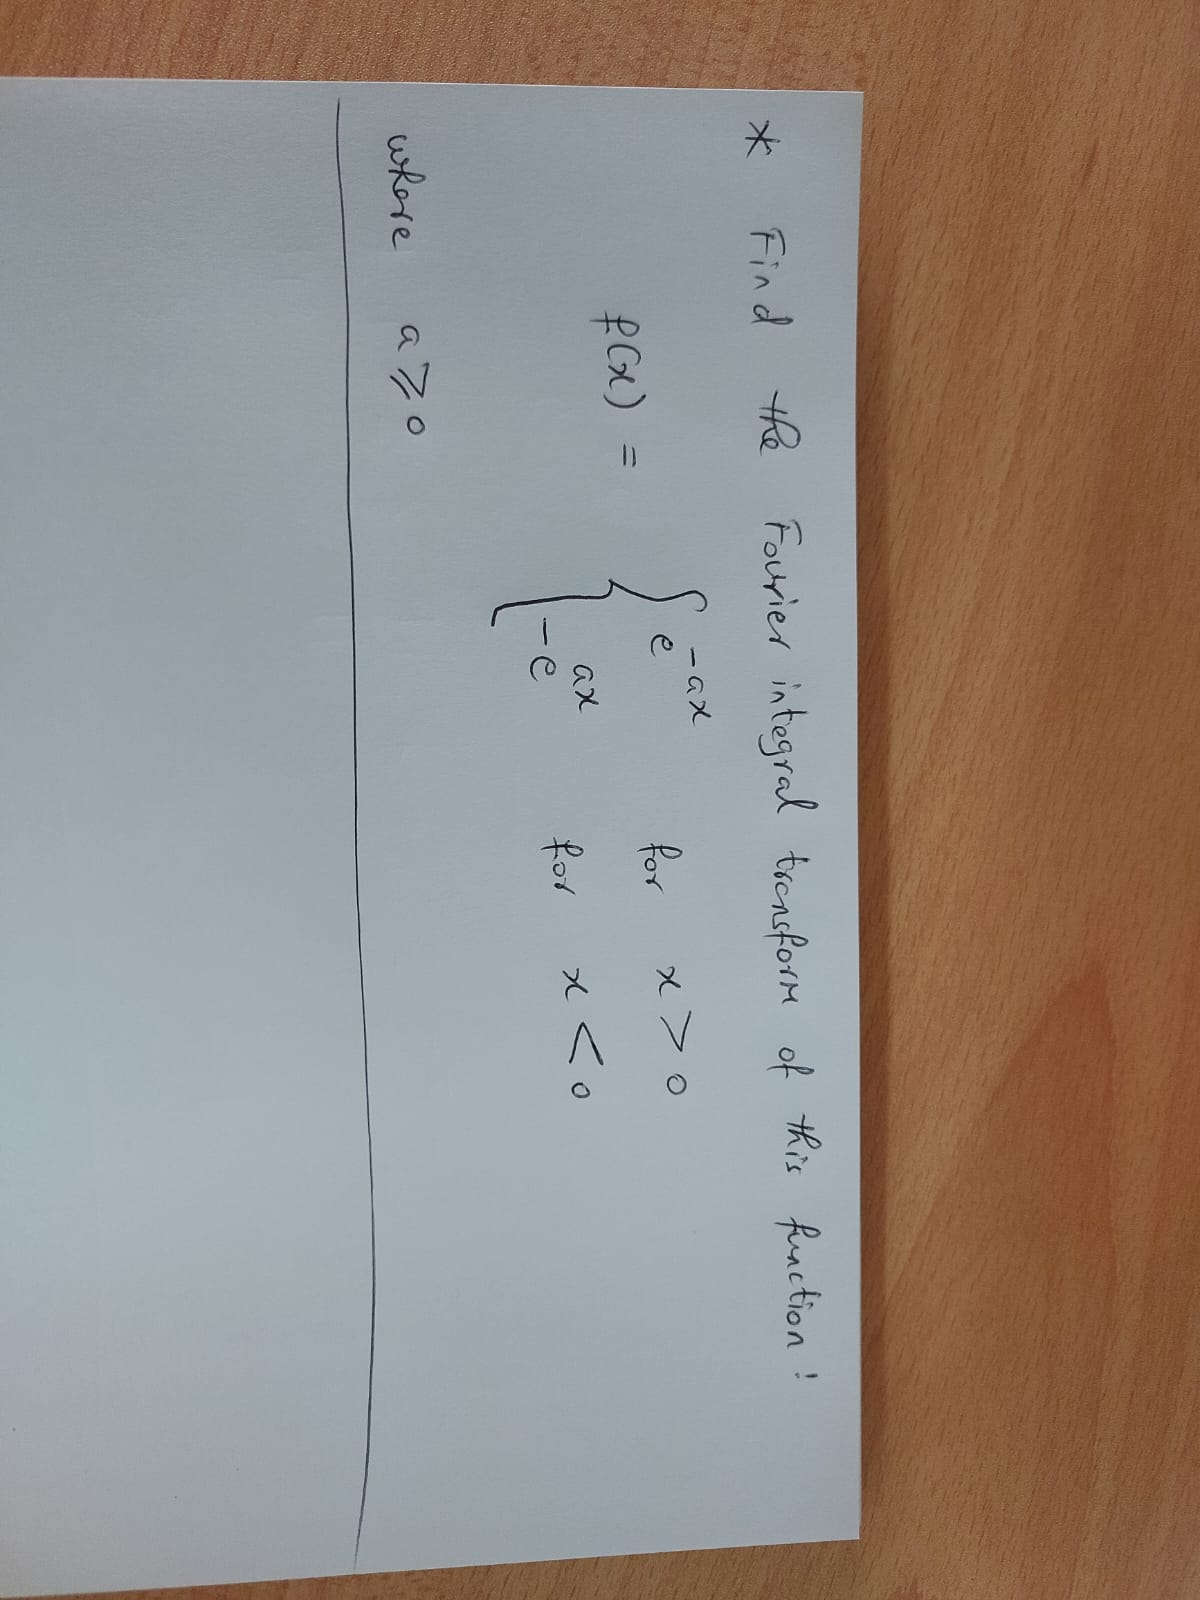 * Find the Fourier integral transform of this function!
f(x) = { e^{-ax} for x > 0
-e^{ax} for x < 0
where a ⩾ 0